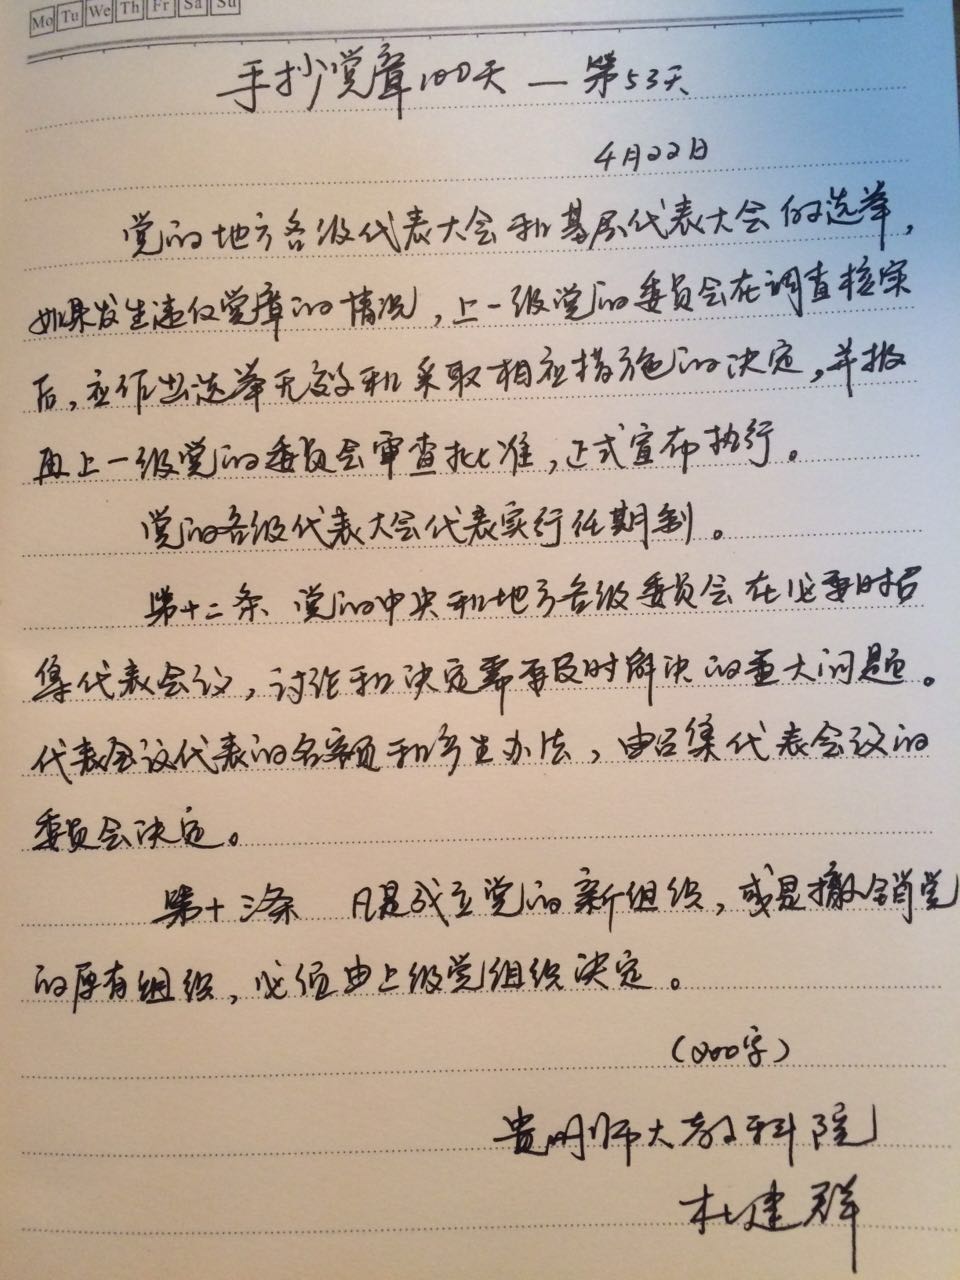 Mo Tu We Th Fr Sa Su
手抄党章100天 — 第53天
4月22日
党的地方各级代表大会和基层代表大会的选举，
如果发生违反党章的情况，上一级党的委员会在调查核实
后，应作出选举无效和采取相应措施的决定，并报
再上一级党的委员会审查批准，正式宣布执行。
党的各级代表大会代表实行任期制。
第十二条 党的中央和地方各级委员会在必要时召
集代表会议，讨论和决定需要及时解决的重大问题。
代表会议代表的名额和产生办法，由召集代表会议的
委员会决定。
第十三条 凡是成立党的新组织，或是撤销党
的原有组织，必须由上级党组织决定。
（200字）
贵州师大教科院
杜建群